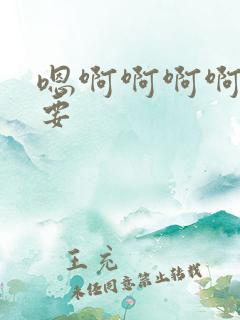 嗯啊啊啊啊
要
王充
未经同意禁止转载